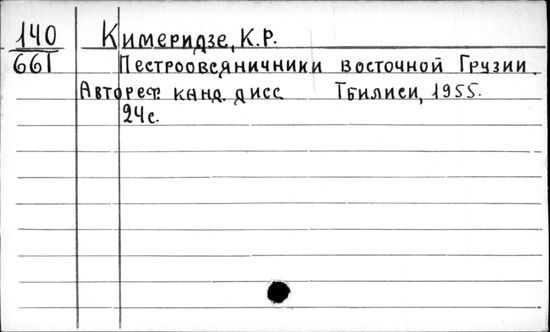 140 Кимеридзе, К.Р.
661 Пестроовсяничники восточной Грузии.
Автореф. канд. дисс Тбилиси, 1955.
24с.